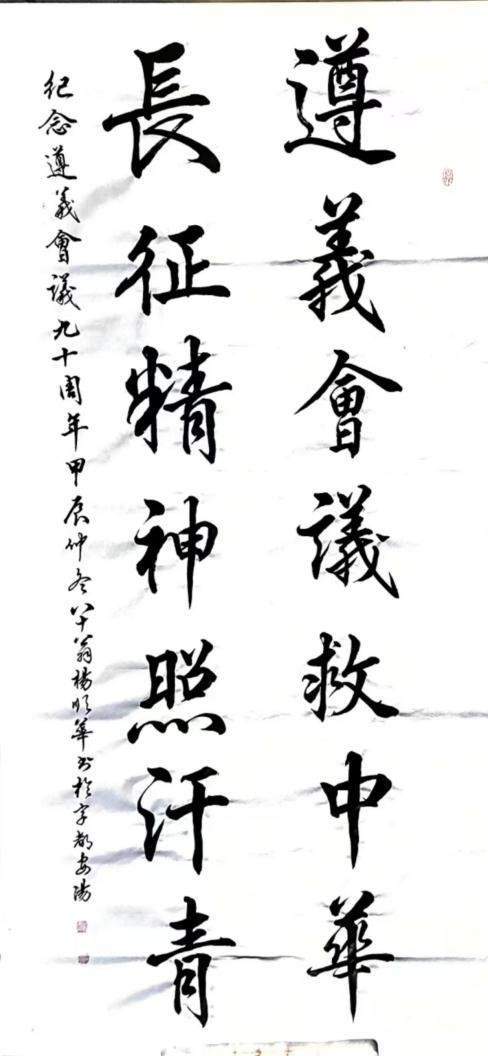 遵義會議救中華
長征精神照汗青
紀念遵義會議九十周年甲辰仲冬八十翁楊順華书於字都安陽